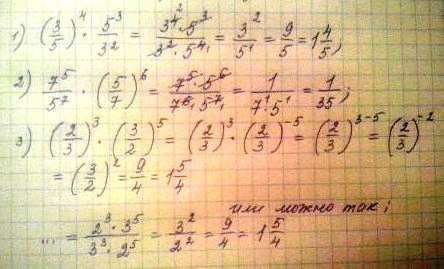 1) (3/5)^4 · 5^3/3^2 = 3^4 · 5^3 / 3^2 · 5^4 = 3^2/5^1 = 9/5 = 1 4/5,
2) 7^5/5^7 · (5/7)^6 = 7^5 · 5^6 / 7^6 · 5^7 = 1/7^1 5^1 = 1/35;
3) (2/3)^3 · (3/2)^5 = (2/3)^3 · (2/3)^-5 = (2/3)^3-5 = (2/3)^-2
= (3/2)^2 = 9/4 = 1 5/4
или можно так;
... = 2^3 · 3^5 / 3^3 · 2^5 = 3^2/2^2 = 9/4 = 1 5/4